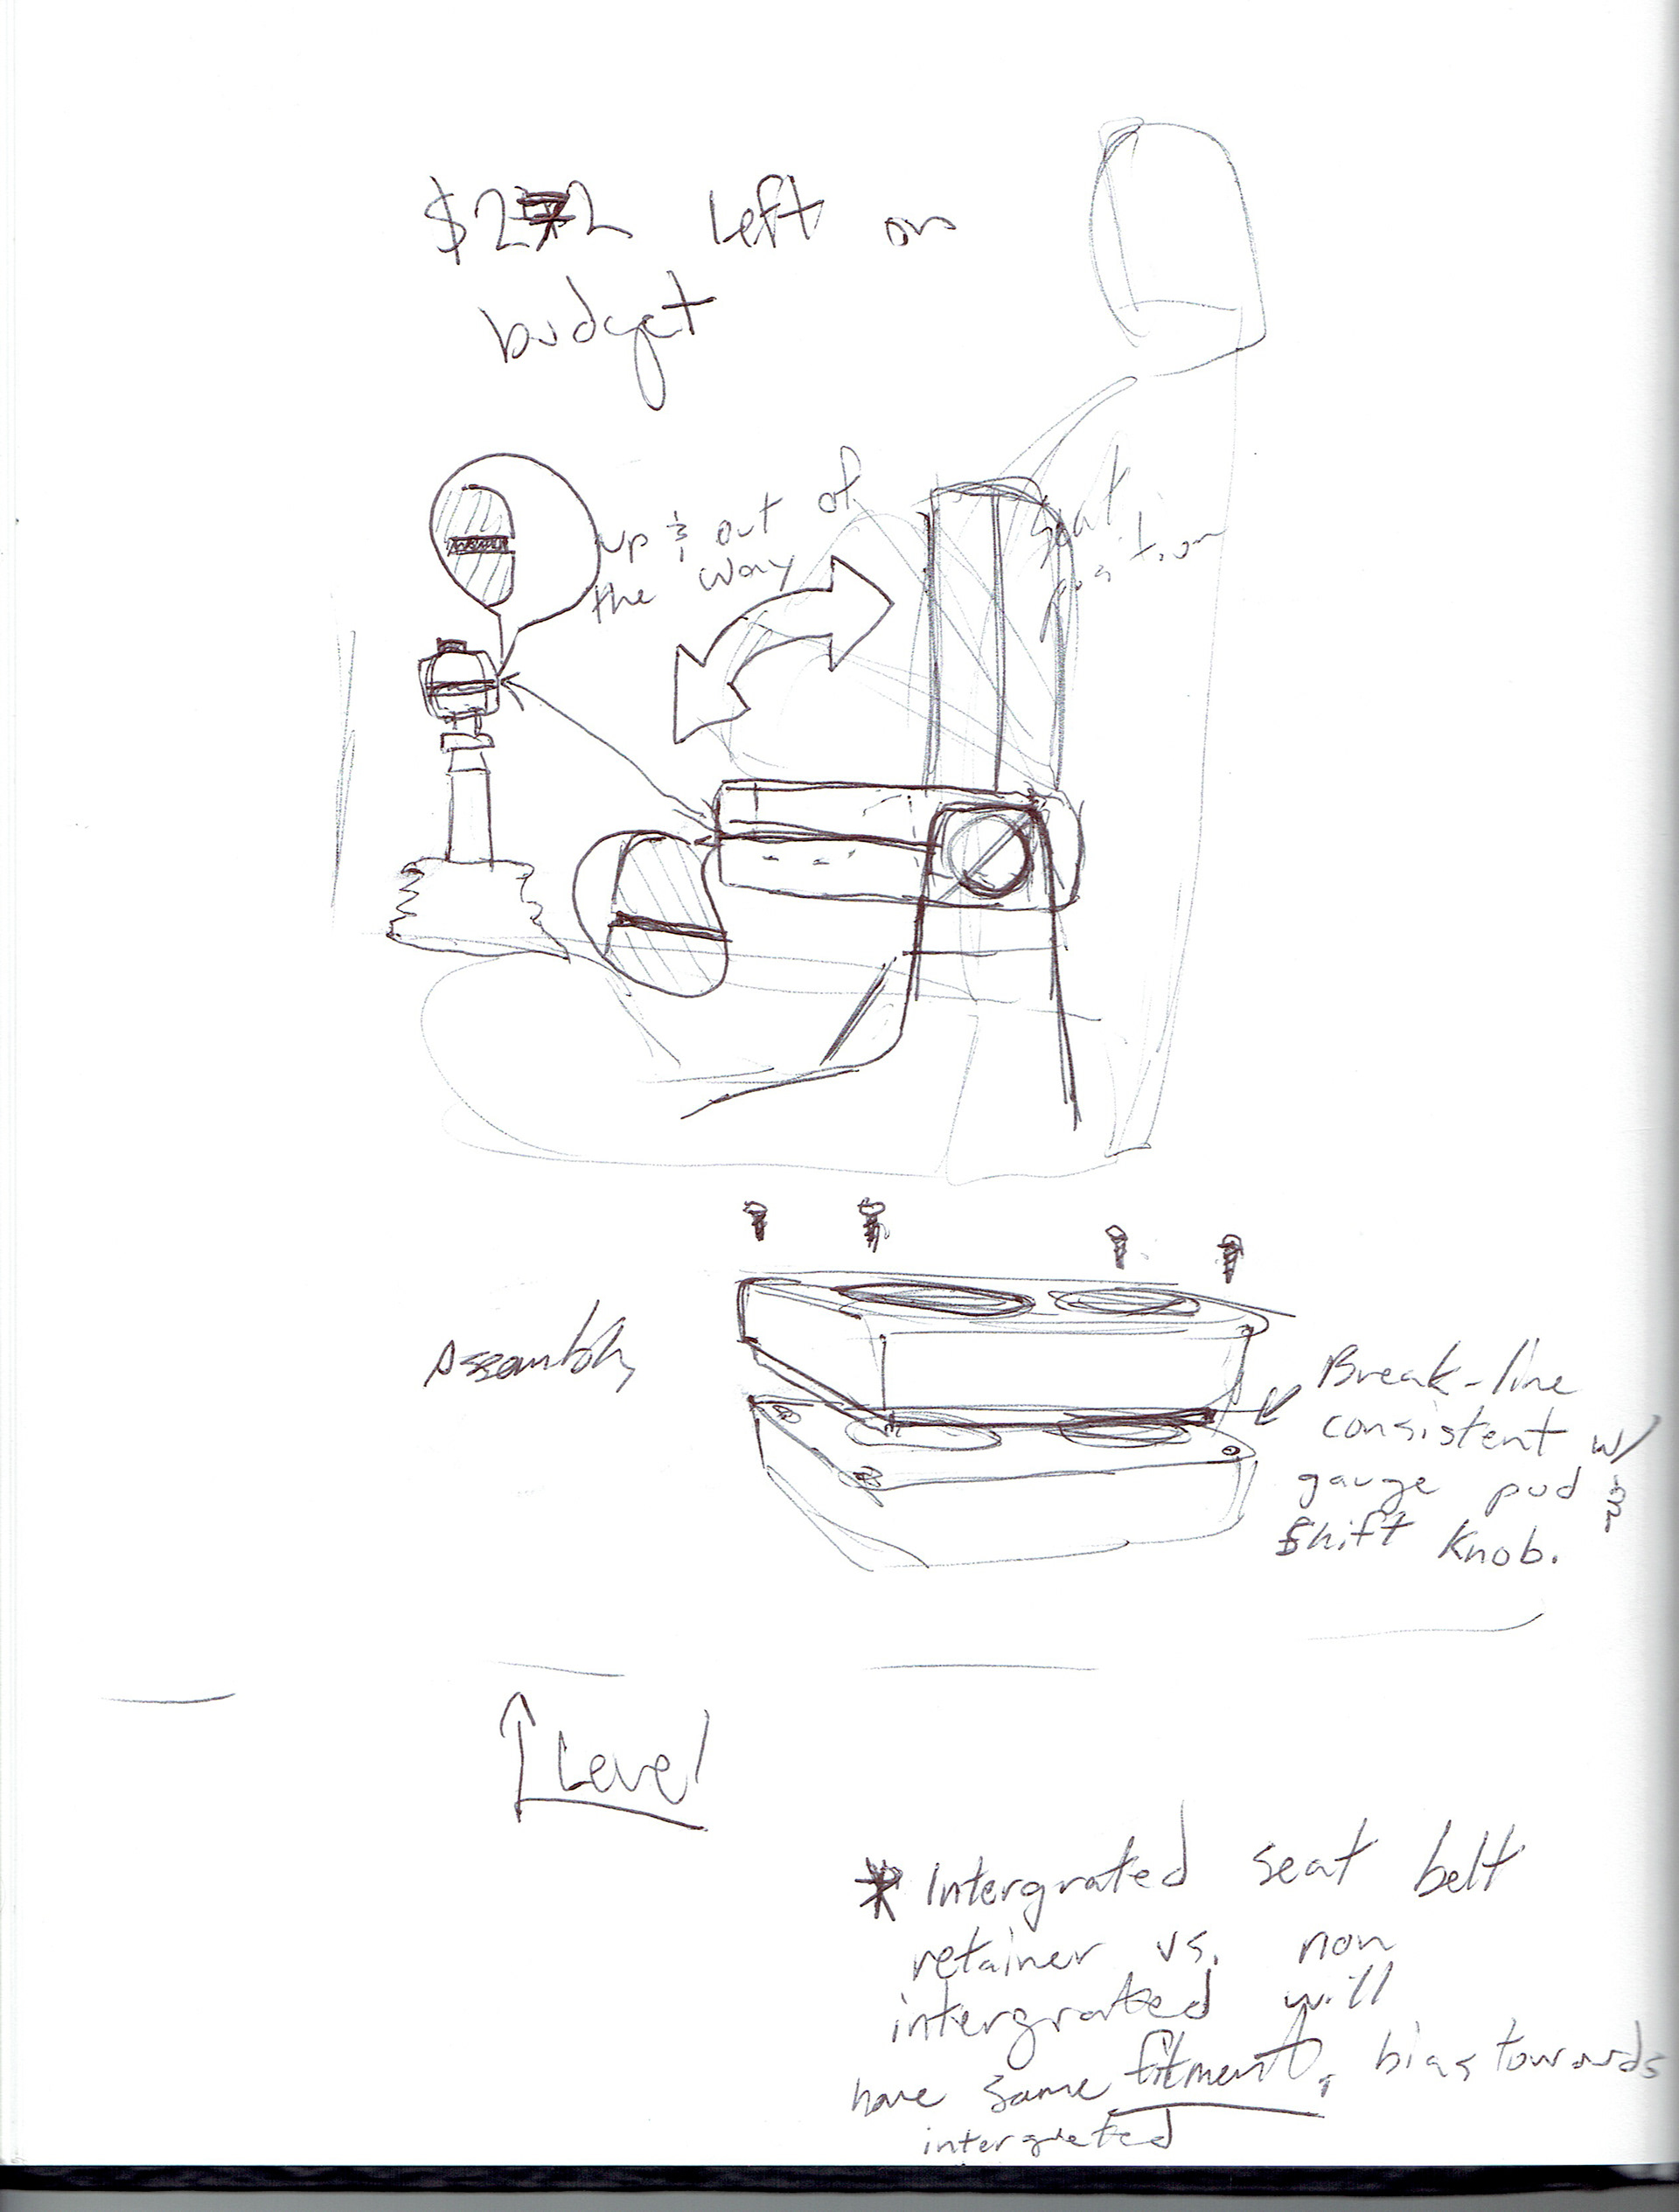 left on
budget
up & out of
the way
seat
position
Assembly
Break-line
consistent w/
gauge pod &
Shift Knob.
Level
* Intergrated seat belt
retainer vs. non
intergrated will
have same fitment, bias towards
intergrated